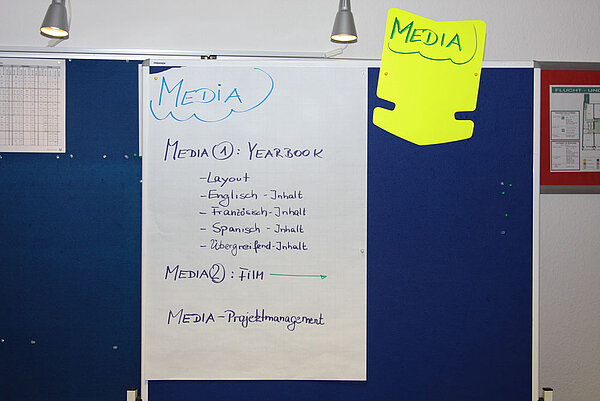 MEDIA
MEDIA
MEDIA 1 : YEARBOOK
- Layout
- Englisch - Inhalt
- Französisch - Inhalt
- Spanisch - Inhalt
- Übergreifend - Inhalt
MEDIA 2 : FILM
MEDIA - Projektmanagement
FLUCHT - UND